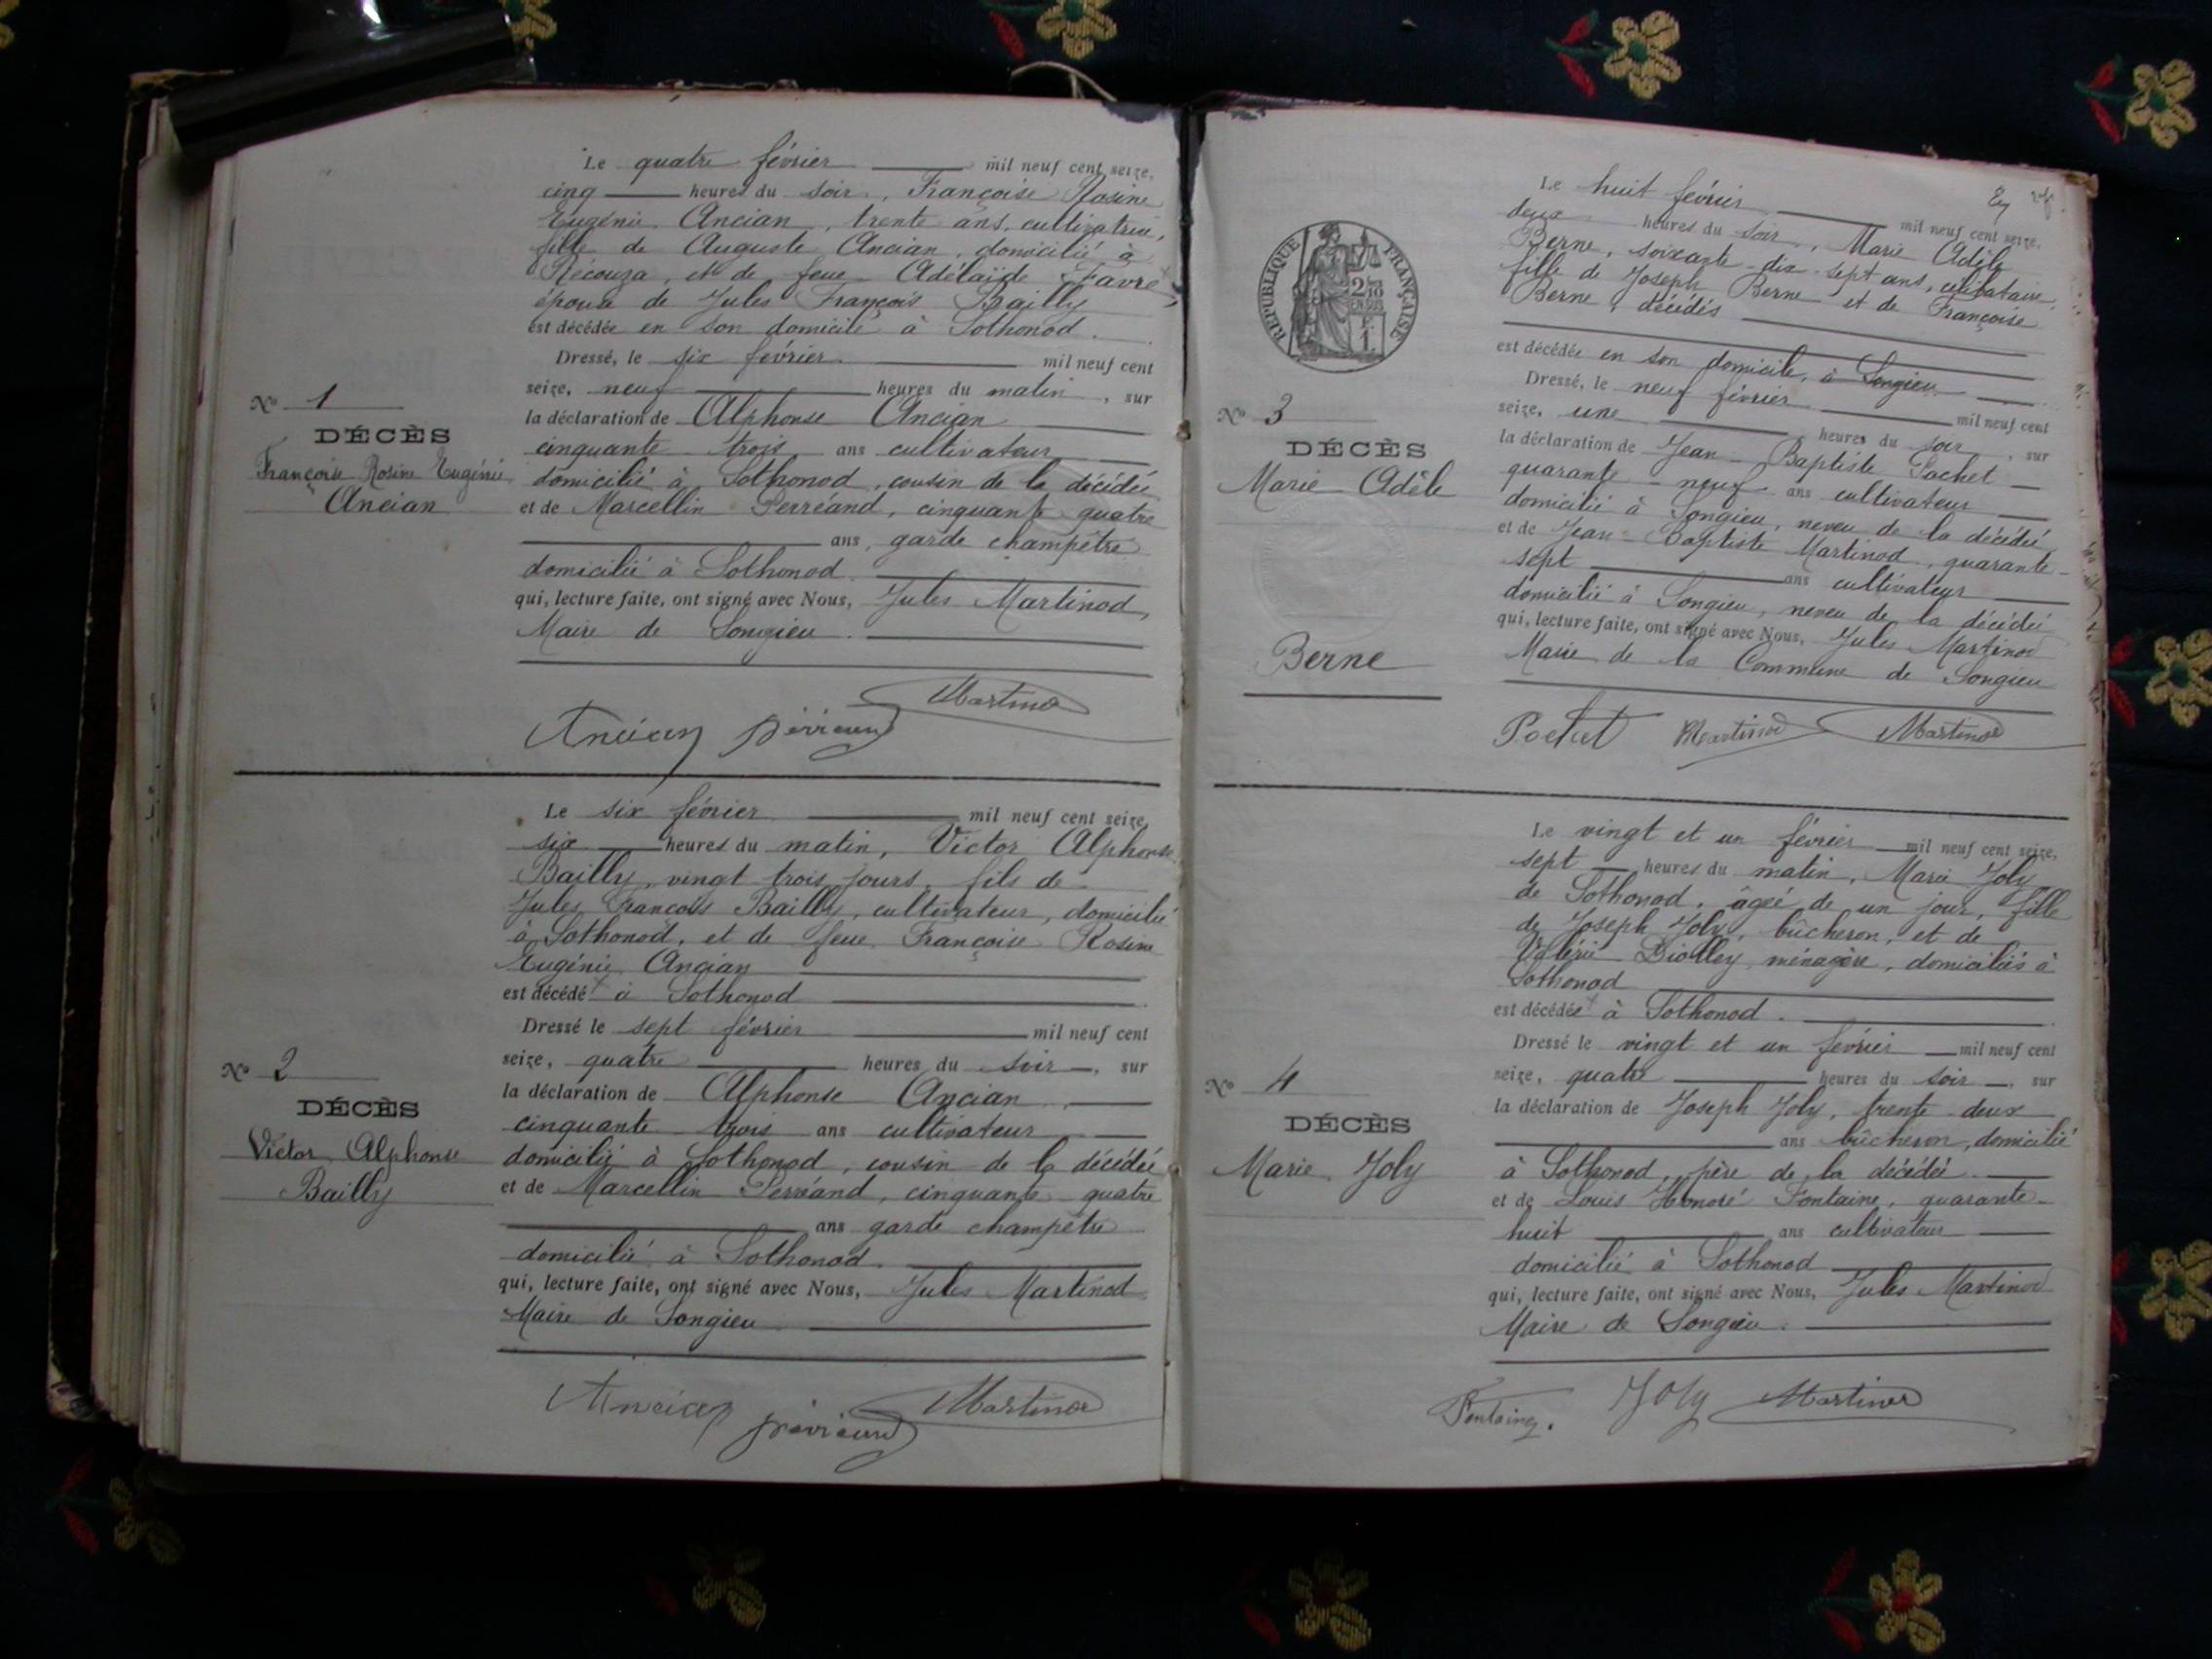 Le quatre février mil neuf cent seize,
cinq heures du soir, Françoise Rosine
Eugénie Ancian, trente ans, cultivatrice,
fille de Auguste Ancian, domicilié à
et de feue Adélaïde Favre
épouse de Jules François Bailly
est décédée en son domicile à Sothonod.
Dressé, le six février mil neuf cent
seize, neuf heures du matin, sur
la déclaration de Alphonse Ancian
cinquante trois ans cultivateur
domicilié à Sothonod, cousin de la décédée
et de Marcellin Perréand, cinquante quatre
ans, garde champêtre
domicilié à Sothonod.
qui, lecture faite, ont signé avec Nous, Jules Martinod,
Maire de Songieu.
Nº 1
DÉCÈS
Françoise Rosine Eugénie
Ancian
Ancian Martinod
Le six février mil neuf cent seize,
six heures du matin, Victor Alphonse
Bailly, vingt trois jours, fils de
Jules François Bailly, cultivateur, domicilié
à Sothonod, et de feue Françoise Rosine
Eugénie Ancian
est décédé à Sothonod
Dressé le sept février mil neuf cent
seize, quatre heures du soir, sur
la déclaration de Alphonse Ancian,
cinquante trois ans cultivateur
domicilié à Sothonod, cousin de la décédée
et de Marcellin Perréand, cinquante quatre
ans garde champêtre
domicilié à Sothonod.
qui, lecture faite, ont signé avec Nous, Jules Martinod
Maire de Songieu
Nº 2
DÉCÈS
Victor Alphonse
Bailly
Ancian Martinod
Le huit février mil neuf cent seize,
deux heures du soir, Marie Adèle
Berne, soixante-dix-sept ans, célibataire,
fille de Joseph Berne et de Françoise
Berne, décédés
est décédée en son domicile, à Songieu
Dressé, le neuf février mil neuf cent
seize, une heures du soir, sur
la déclaration de Jean-Baptiste Pochet
quarante-neuf ans cultivateur
domicilié à Songieu, neveu de la décédée
et de Jean-Baptiste Martinod, quarante-
sept ans cultivateur
domicilié à Songieu, neveu de la décédée
qui, lecture faite, ont signé avec Nous, Jules Martinod
Maire de la Commune de Songieu
RÉPUBLIQUE FRANÇAISE
Nº 3
DÉCÈS
Marie Adèle
Berne
Pochet Martinod Martinod
Le vingt et un février mil neuf cent seize,
sept heures du matin, Marie Joly
de Sothonod, âgée de un jour, fille
de Joseph Joly, bûcheron, et de
Valérie Diolley, ménagère, domiciliés à
Sothonod
est décédée à Sothonod.
Dressé le vingt et un février mil neuf cent
seize, quatre heures du soir, sur
la déclaration de Joseph Joly, trente-deux
ans bûcheron, domicilié
à Sothonod, père de la décédée
et de Louis Honoré Fontaine, quarante-
huit ans cultivateur
domicilié à Sothonod
qui, lecture faite, ont signé avec Nous, Jules Martinod
Maire de Songieu.
Nº 4
DÉCÈS
Marie Joly
Fontaine. Joly Martinod